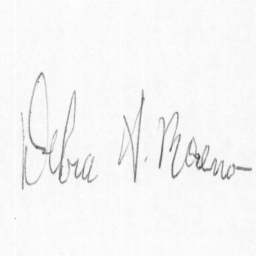 Debra N. Moreno